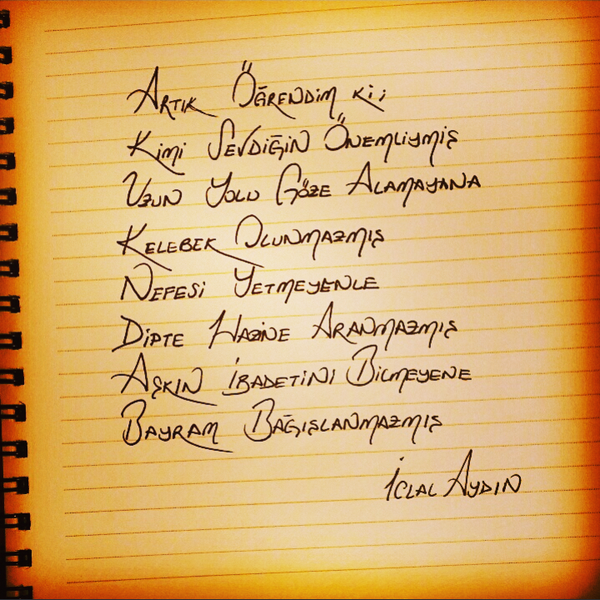 Artık Öğrendim ki;
Kimi Sevdiğin Önemliymiş
Uzun Yolu Göze Alamayana
Kelebek Olunmazmış
Nefesi Yetmeyenle
Dipte Hazine Aranmazmış
Aşkın İbadetini Bilmeyene
Bayram Bağışlanmazmış
İclal Aydın